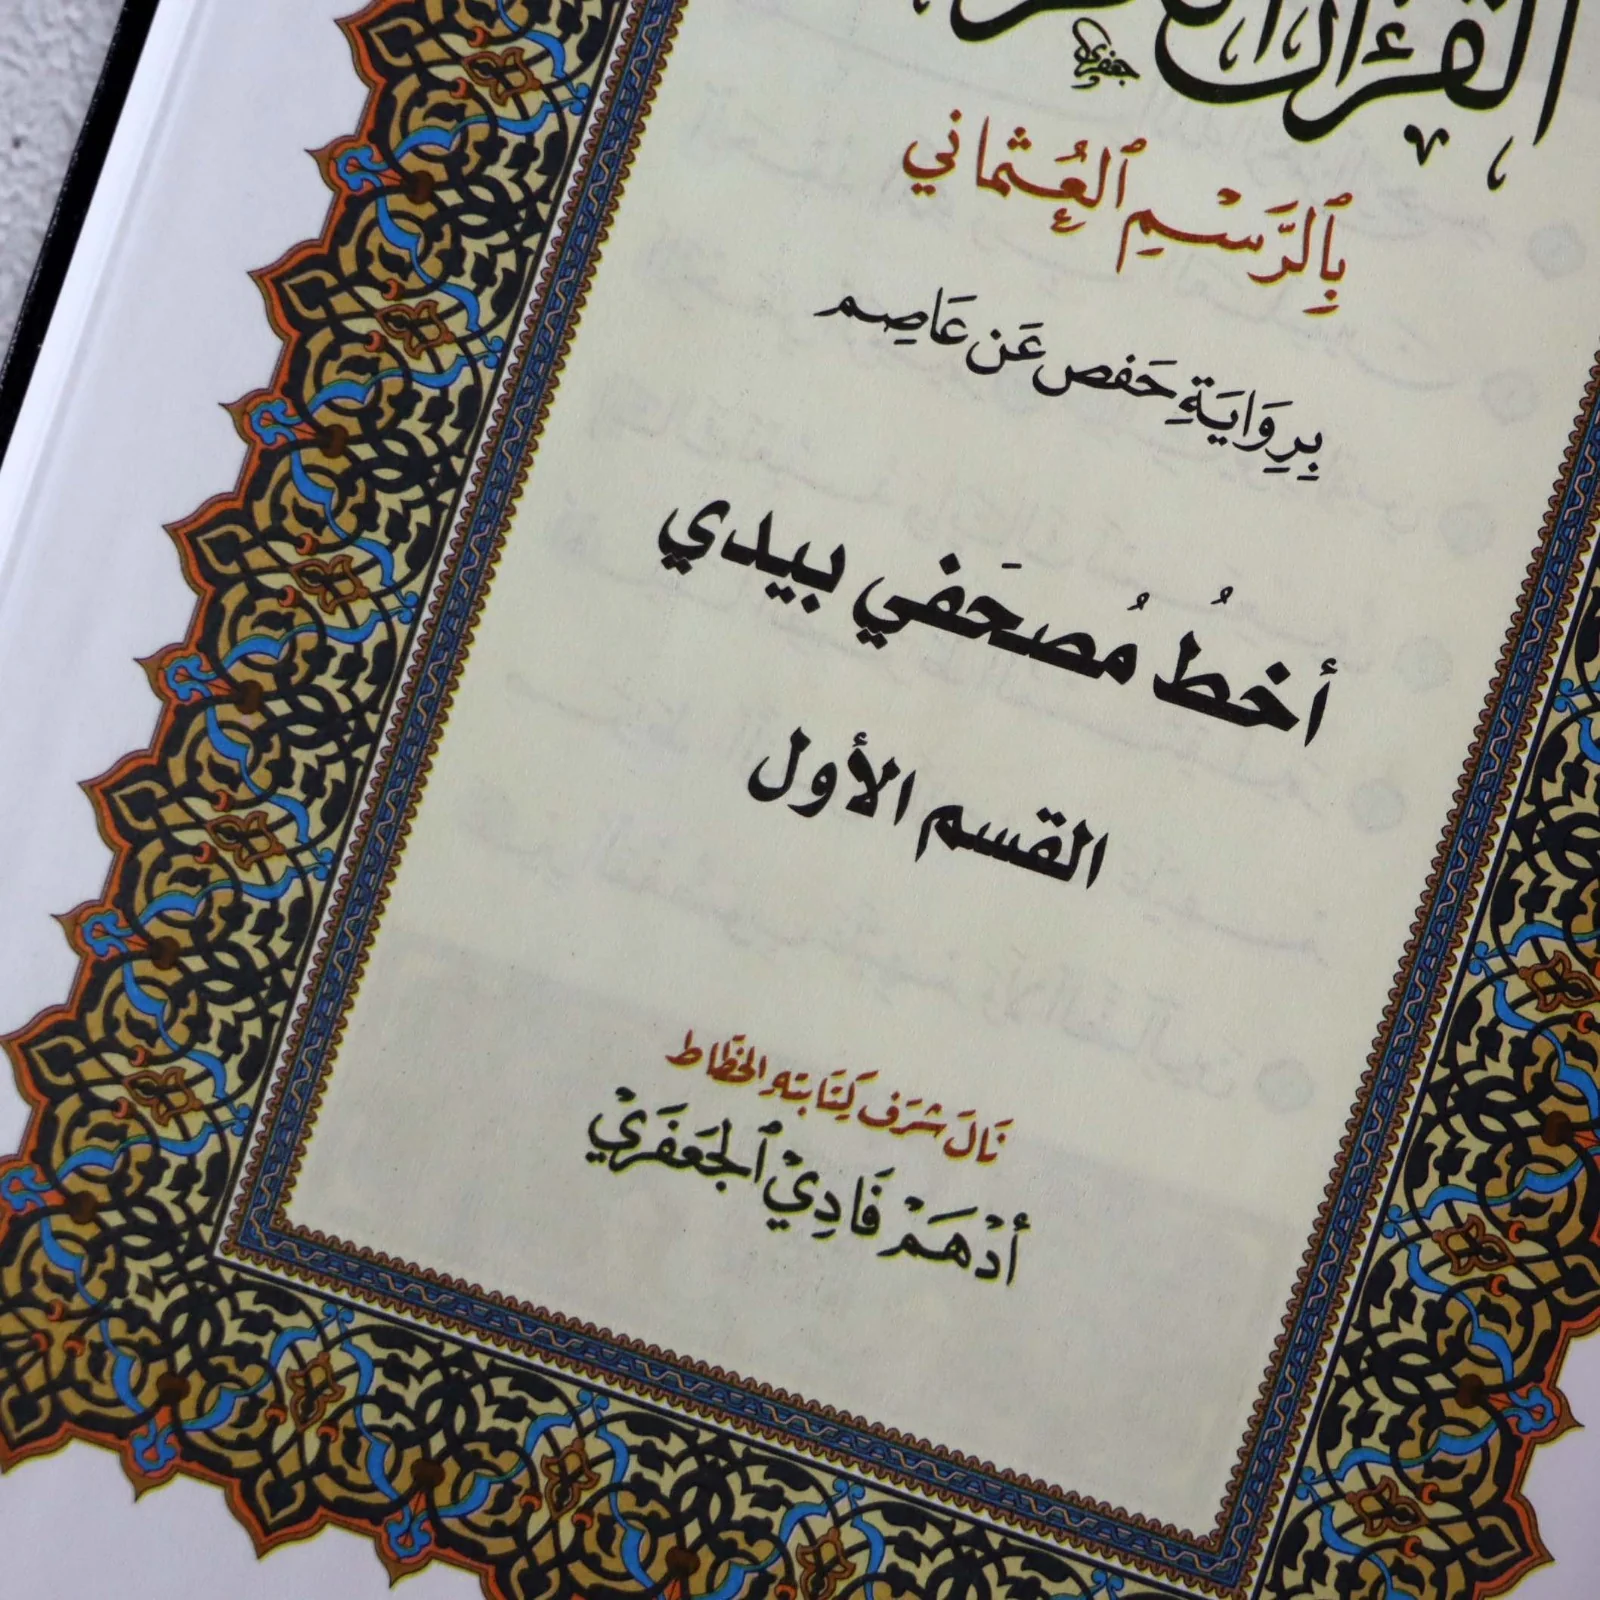 القرآن الكريم
جعفري
بِٱلرَّسْمِ ٱلعُثمَاني
بِرِوَايَةِ حَفص عَن عَاصِم
أخطُ مُصحَفي بيدي
القسم الأول
نَالَ شَرَف كِتَابته الخطّاط
أدْهَمْ فَادِيْ ٱلجَعَفَرِيْ